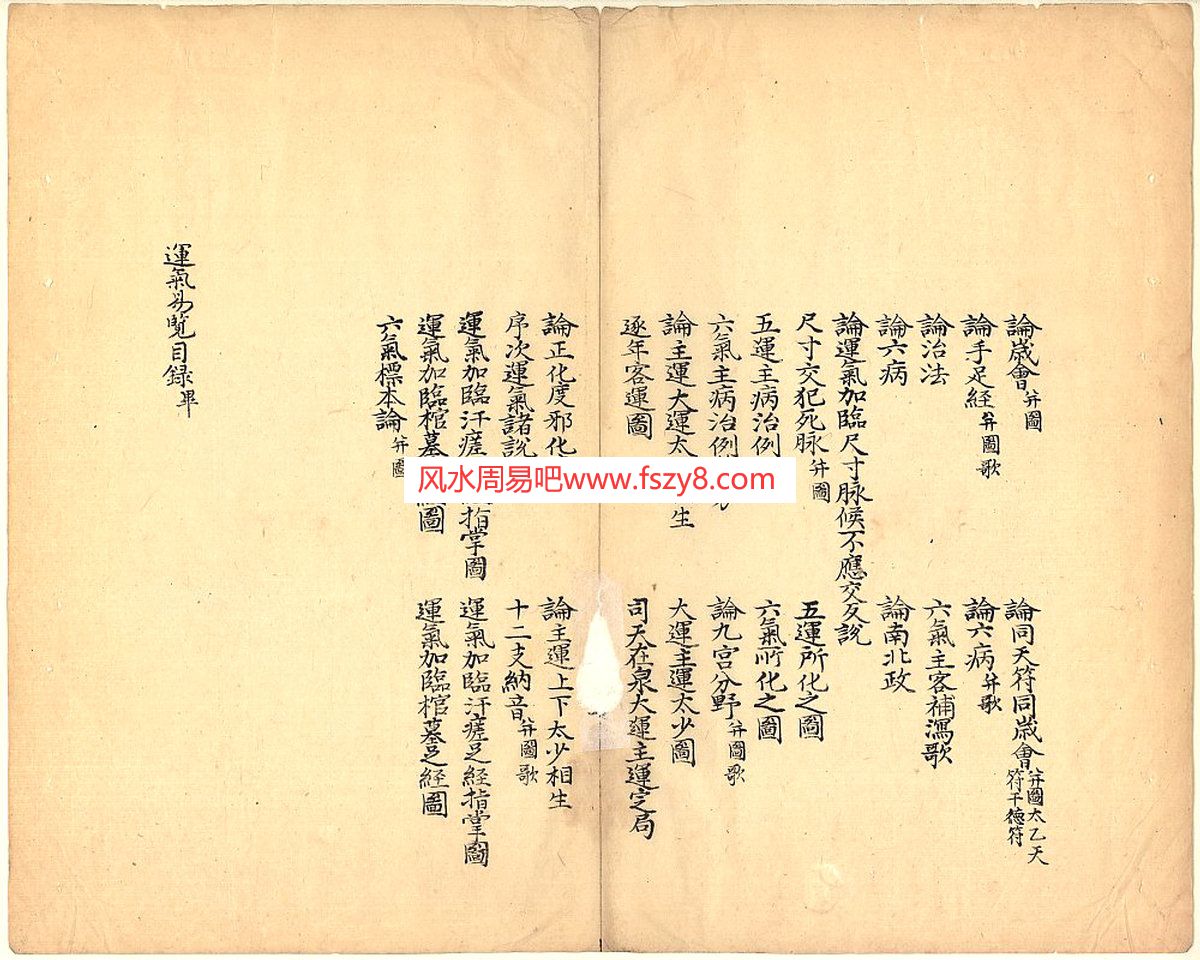 論歳會并圖
論同天符同歳會并圖太乙天符干德符
論手足経并圖歌
論六病并歌
論治法
六氣主客補瀉歌
論六病
論南北政
論運氣加臨尺寸脉候不應交反説
尺寸交犯死脉并圖
五運所化之圖
五運主病治例
六氣所化之圖
六氣主病治例
論九宮分野并圖歌
論主運大運太 生
大運主運太少圖
逐年客運圖
司天在泉大運主運定局
論正化度邪化
論主運上下太少相生
序次運氣諸説
十二支納音并圖歌
運氣加臨汗瘥 指掌圖
運氣加臨汗瘥足経指掌圖
運氣加臨棺墓 圖
運氣加臨棺墓足経圖
六氣標本論并圖
運氣易覽目録畢
风水周易吧www.fszy8.com